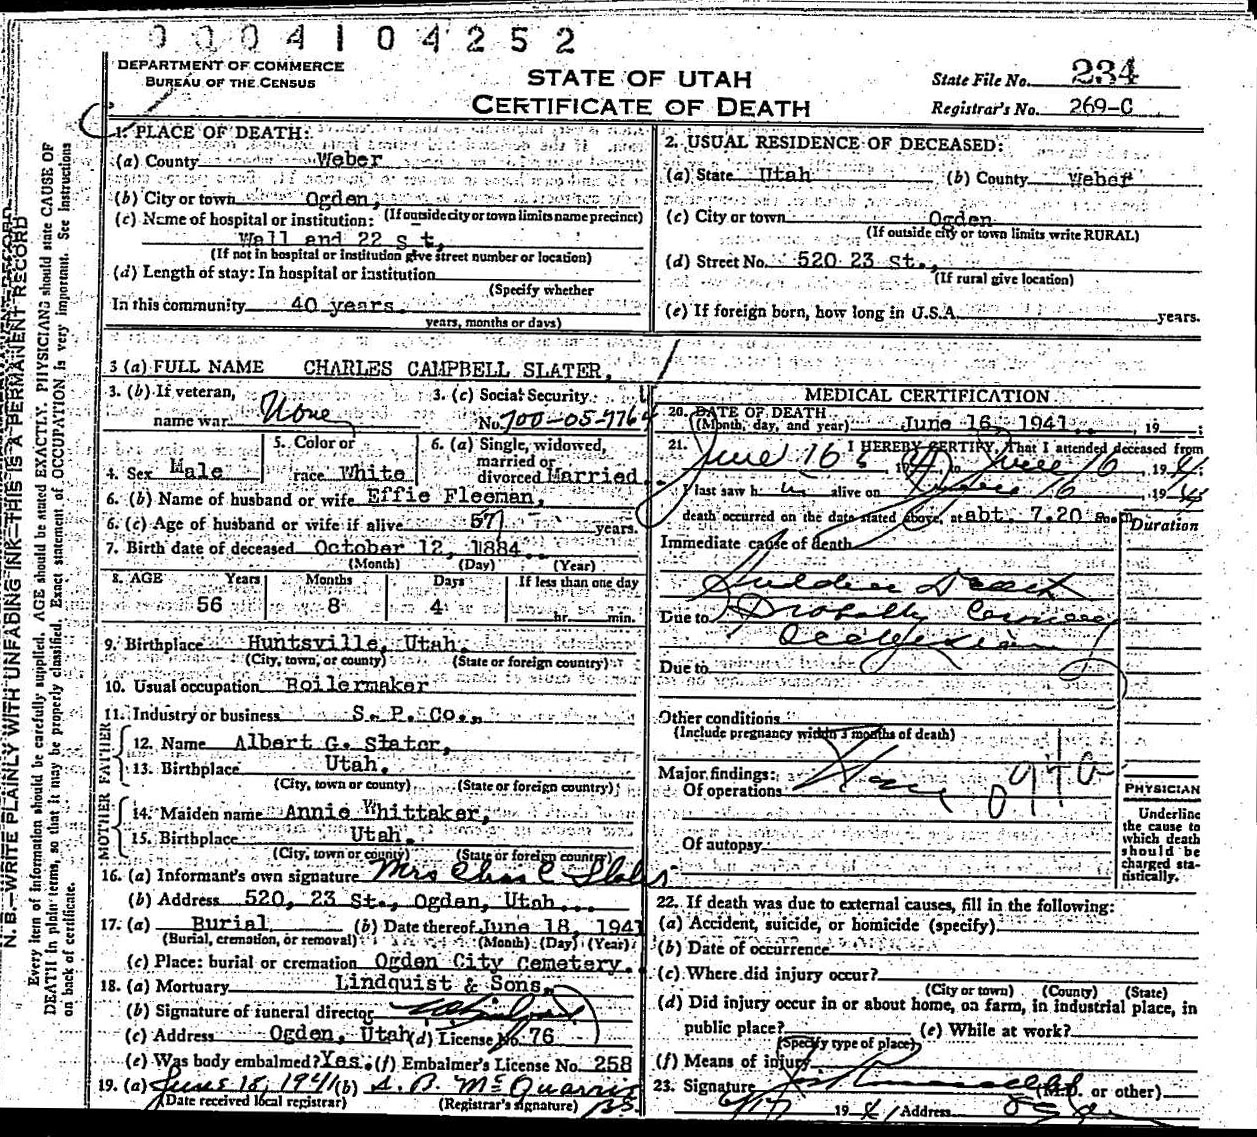 0004104252
DEPARTMENT OF COMMERCE
BUREAU OF THE CENSUS
STATE OF UTAH
CERTIFICATE OF DEATH
State File No. 234
Registrar's No. 269-C
1. PLACE OF DEATH:
(a) County Weber
(b) City or town Ogden,
(If outside city or town limits name precinct)
(c) Name of hospital or institution:
Wall and 22 st,
(If not in hospital or institution give street number or location)
(d) Length of stay: In hospital or institution
(Specify whether
In this community 40 years.
years, months or days)
2. USUAL RESIDENCE OF DECEASED:
(a) State Utah (b) County Weber
(c) City or town Ogden
(If outside city or town limits write RURAL)
(d) Street No. 520 23 St.,
(If rural give location)
(e) If foreign born, how long in U.S.A. years.
3 (a) FULL NAME CHARLES CAMPBELL SLATER,
3. (b) If veteran,
name war None
3. (c) Social Security
No. 700-05-776
4. Sex Male
5. Color or
race White
6. (a) Single, widowed,
married or
divorced Married.
6. (b) Name of husband or wife Effie Fleeman,
6. (c) Age of husband or wife if alive 57 years.
7. Birth date of deceased October 12, 1884.
(Month) (Day) (Year)
8. AGE Years Months Days If less than one day
56 8 4 hr. min.
9. Birthplace Huntsville, Utah.
(City, town, or county) (State or foreign country)
10. Usual occupation Boilermaker
11. Industry or business S. P. Co.,
FATHER
12. Name Albert G. Slater,
13. Birthplace Utah.
(City, town or county) (State or foreign country)
MOTHER
14. Maiden name Annie Whittaker,
15. Birthplace Utah.
(City, town or county) (State or foreign country)
16. (a) Informant's own signature Mrs Chas C. Slater
(b) Address 520, 23 St., Ogden, Utah.
17. (a) Burial (b) Date thereof June 18, 1941
(Burial, cremation, or removal) (Month) (Day) (Year)
(c) Place: burial or cremation Ogden City Cemetery.
18. (a) Mortuary Lindquist & Sons,
(b) Signature of funeral director
(c) Address Ogden, Utah (d) License No. 76
(e) Was body embalmed? Yes. (f) Embalmer's License No. 258
19. (a) June 18, 1941 (b) A. B. McQuarrie
(Date received local registrar) (Registrar's signature)
MEDICAL CERTIFICATION
20. DATE OF DEATH
(Month, day, and year) June 16, 1941. , 19
21. I HEREBY CERTIFY, That I attended deceased from
June 16, 1941 to June 16, 1941
I last saw him alive on June 16, 1941
death occurred on the date stated above, at abt. 7.20 a.m.
Duration
Immediate cause of death
Sudden Death
Due to Probably Coronary
Occlusion
Due to
Other conditions
(Include pregnancy within 3 months of death)
Major findings:
Of operations
Of autopsy
PHYSICIAN
Underline
the cause to
which death
should be
charged sta-
tistically.
22. If death was due to external causes, fill in the following:
(a) Accident, suicide, or homicide (specify)
(b) Date of occurrence
(c) Where did injury occur?
(City or town) (County) (State)
(d) Did injury occur in or about home, on farm, in industrial place, in
public place? (e) While at work?
(Specify type of place)
(f) Means of injury
23. Signature (M.D. or other)
6/17 1941 Address Ogden
N. B.—WRITE PLAINLY WITH UNFADING INK—THIS IS A PERMANENT RECORD
Every item of information should be carefully supplied. AGE should be stated EXACTLY. PHYSICIANS should state CAUSE OF
DEATH in plain terms, so that it may be properly classified. Exact statement of OCCUPATION is very important. See Instructions
on back of certificate.